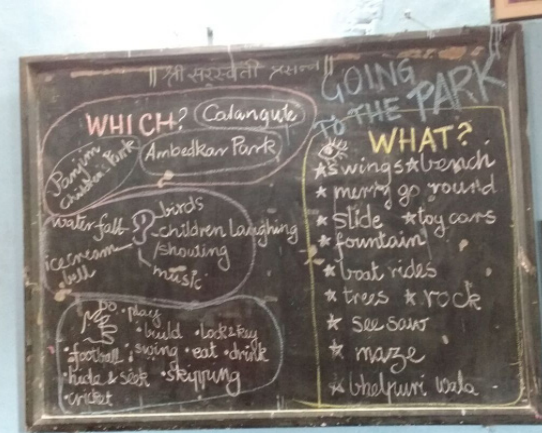 || श्री सरस्वती प्रसन्न ||
GOING
TO THE PARK
WHICH? Calangute
Panjim
Children's Park
Ambedkar Park
birds
waterfall
children laughing
/shouting
icecream
bell
music
DO
• play
• build • lock & key
• football • swing • eat • drink
• hide & seek • skipping
• cricket
WHAT?
★ swings ★ bench
★ merry go round
★ slide ★ toy cars
★ fountain
★ boat rides
★ trees ★ rock
★ see saw
★ maze
★ bhelpuri wala